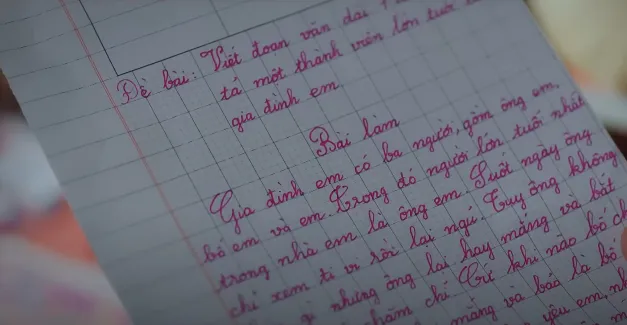 Đề bài: Viết đoạn văn dài
tả một thành viên lớn tuổi
gia đình em.
Bài làm
Gia đình em có ba người, gồm ông em,
bố em và em. Trong đó người lớn tuổi nhất
trong nhà em là ông em. Suốt ngày ông
chỉ xem ti vi rồi lại ngủ. Tuy ông không
gì nhưng ông lại hay mắng và bắt
chăm chỉ. Cứ khi nào bố
mắng và bảo là bố
yêu em